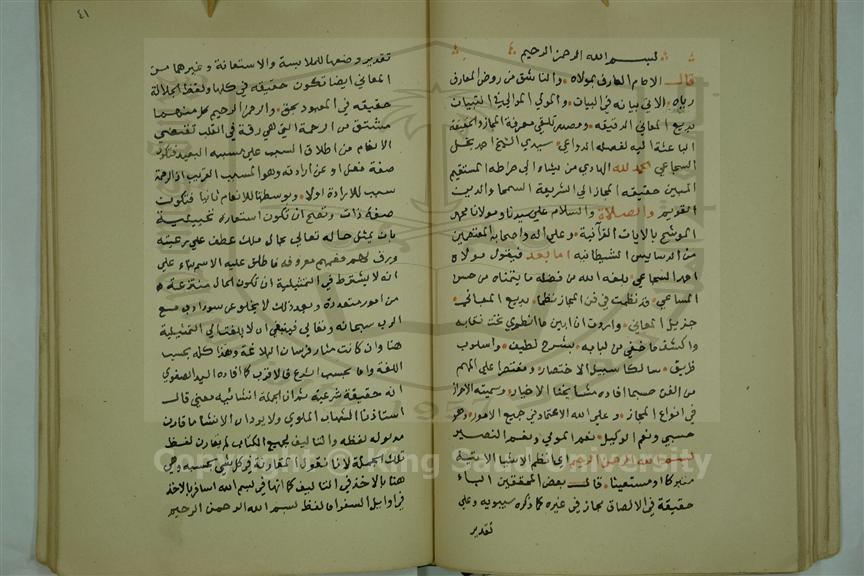 بسم الله الرحمن الرحيم
قال الامام العارف بمولاه والناشق من روض المعارف
رياه الآتي ببيانه في البيان والمولي
بديع المعاني الدقيقه ومصدر تلقي معرفة المجاز والحقيقة
الباعثة اليه لفضله الدواعي سيدي الشيخ احمد نجل
السجاعي الحمد لله الهادي من يشاء الي صراطه المستقيم
المبين حقيقة المجاز الي الشريعة السمحا والدين
القويم والصلاة والسلام علي سيدنا ومولانا محمد
الموشح بالايات القرآنية وعلي اله واصحابه المعتصمين
من الدسايس الشيطانيه اما بعد فيقول مولاه
احمد السجاعي بلغه الله من فضله ما يتمناه من حسن
المساعي قد نظمت في فن المجاز نظما بديع المعاني
جزيل المعاني واردت ان ابين ما انطوي تحت نقابه
واكشف ما خفي من لبابه بشرح لطيف واسلوب
ظريف سالكا سبيل الاختصار ومقتصرا علي المهم
من الفن حسبما افاده مشايخنا الاخيار وسميته الاحراز
في انواع المجاز وعلي الله الاعتماد في جميع الامور وهو
حسبي ونعم الوكيل نعم المولي ونعم النصير
بسم الله الرحمن الرحيم اي انظم الاشيا الاتية
متبركا او مستعينا قال بعض المحققين الباء
حقيقة في الالصاق مجاز في غيره كما ذكره سيبويه وعلي
تقدير
٤١
تقدير وضعها للملابسة والاستعانة وغيرهما من
المعاني ايضا تكون حقيقه في كلها ولفظ الجلالة
حقيقه في المعبود بحق والرحمن الرحيم كل منهما
مشتق من الرحمة التي هي رقة في القلب تقتضي
الانعام من اطلاق السبب علي مسببه البعيد فتكون
صفة فعل او عن ارادته وهو المسبب القريب اذ الرحمة
سبب للارادة اولا وبوسطتها للانعام ثانيا فتكون
صفة ذات ويصح ان تكون استعارة تمثيلية
بان يمثل حاله تعالي بحال ملك عطف علي رعيته
ورق لهم فعمهم معروفه فاطلق عليه الاسم بناء علي
انه لا يشترط في التمثيلية ان تكون الحال منتزعة
من امور متعددة وبعد ذلك لا يخلو عن سوء ادب مع
الرب سبحانه وتعالي فينبغي ان لا يلتفت الي التمثيلية
هنا وان كانت مثار فرسان البلاغة وهذا كله بحسب
اللغة واما بحسب الشرع فالاقرب كما افاده السيد الصفوي
انه حقيقة شرعية ثم ان الجملة انشائيه معني قال
استاذنا الشهاب الملوي ولا يرد ان الانشا ما قارن
مدلوله لفظه والتاليف لجميع الكتاب لم يقارن لفظ
تلك الجملة لانا نقول المقارنة في كل شي بحسبه وهي
هنا بالاخذ في التاليف كما انها في بسم الله اسافر بالاخذ
في اوايل السفر اما لفظ بسم الله الرحمن الرحيم
Copyright © King Saud University